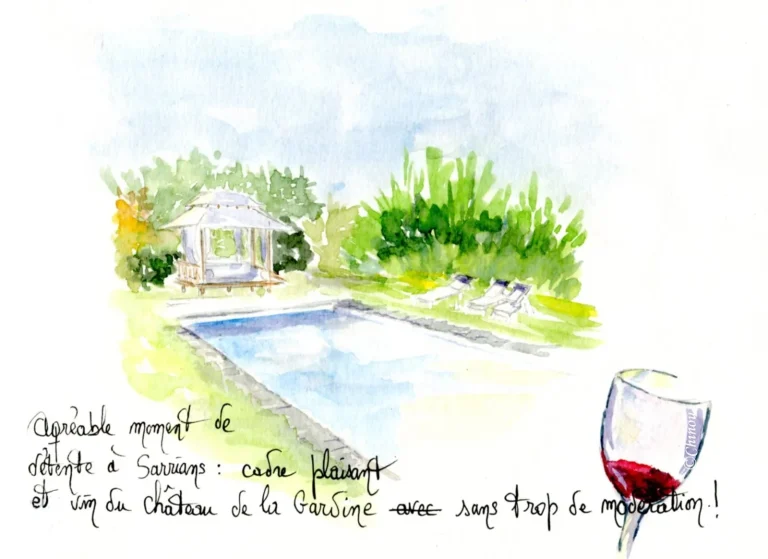 agréable moment de
détente à Sarrians : cadre plaisant
et vin du château de la Gardine avec sans trop de modération !
©Chinou